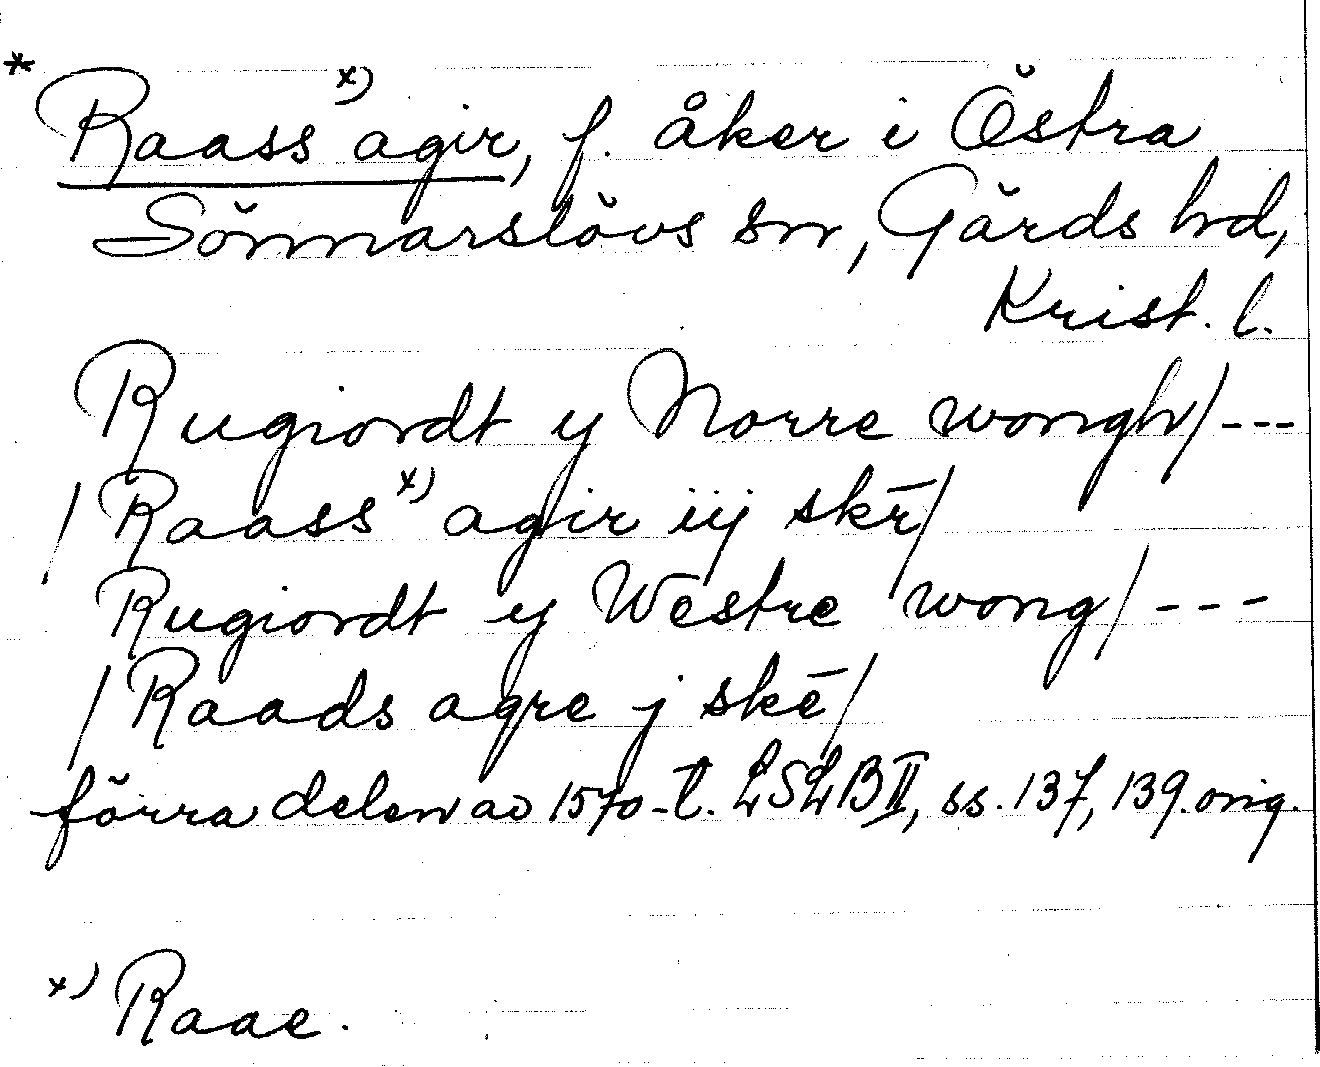 * Raass x) agir, f. åker i Östra
Sönnarslövs sn, Gärds hd,
Krist. l.
Rugiordt y Norre wongh/---
/Raass x) agir iij skē/
Rugiordt y Westre wong/---
/Raads agre j skē/
förra delen av 1570-t. LSLB II, ss. 137, 139. orig.
x) Raae.